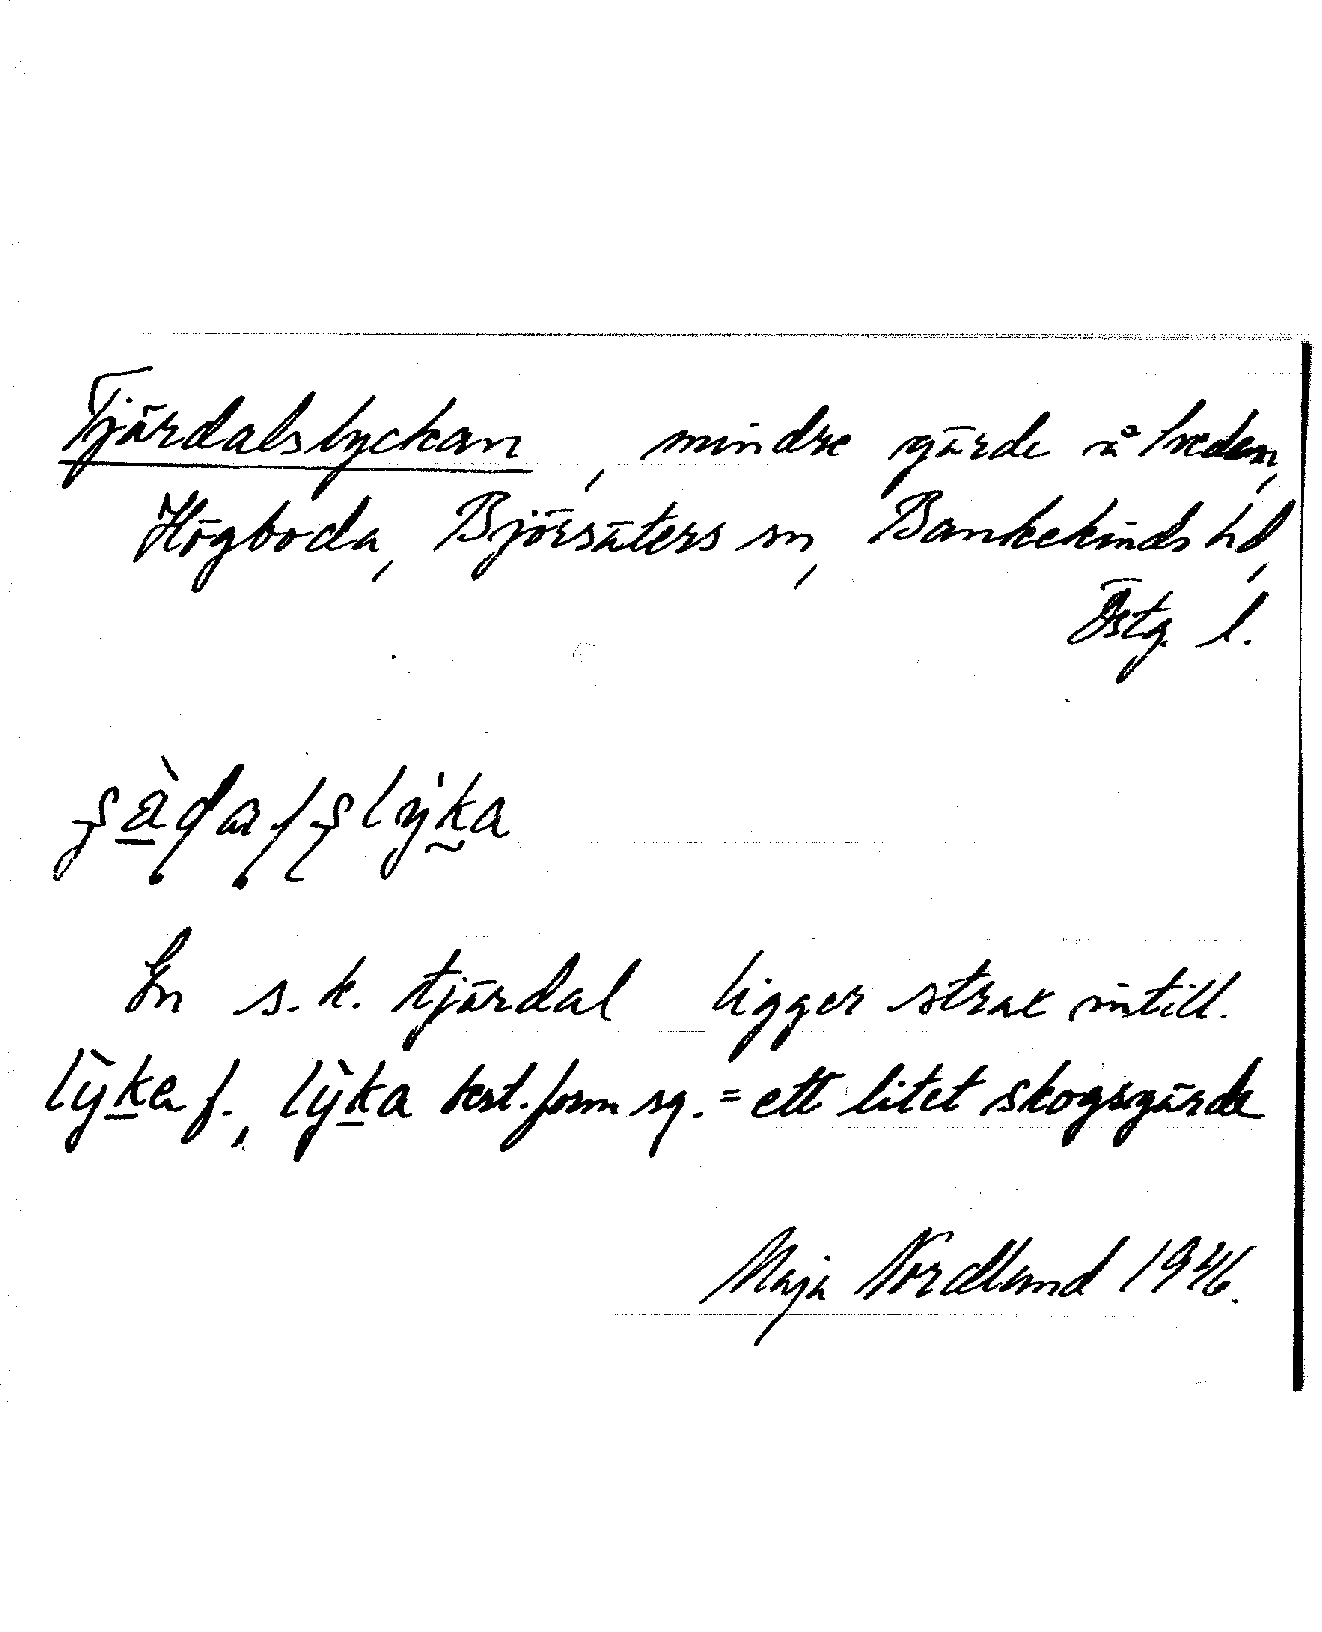 Tjärdalslyckan, mindre gärde å Sveden,
Högboda, Björsäters sn, Bankekinds hd,
Östg. l.
En s.k. tjärdal ligger strax intill.
f., best. form sg. = ett litet skogsgärde
Maja Nordlund 1946.